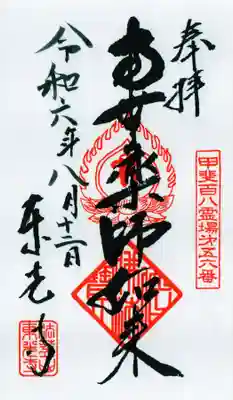 奉拝
甲斐百八霊場第五六番
南無薬師如来
令和六年八月十二日
東光寺